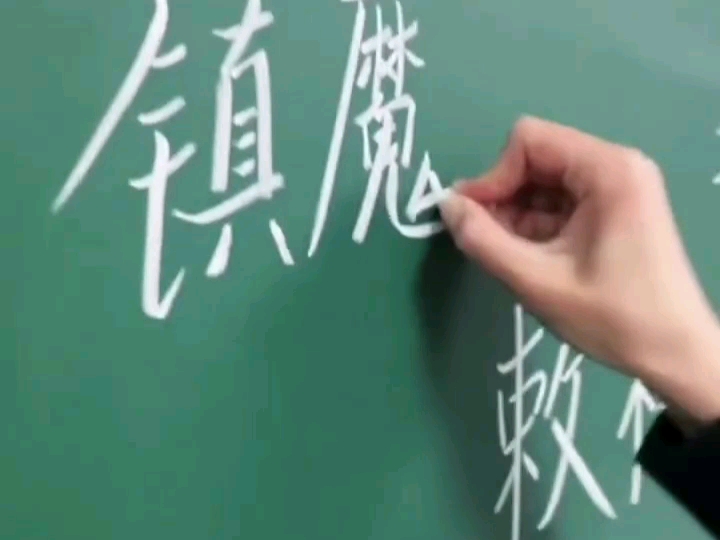 镇魔
敕